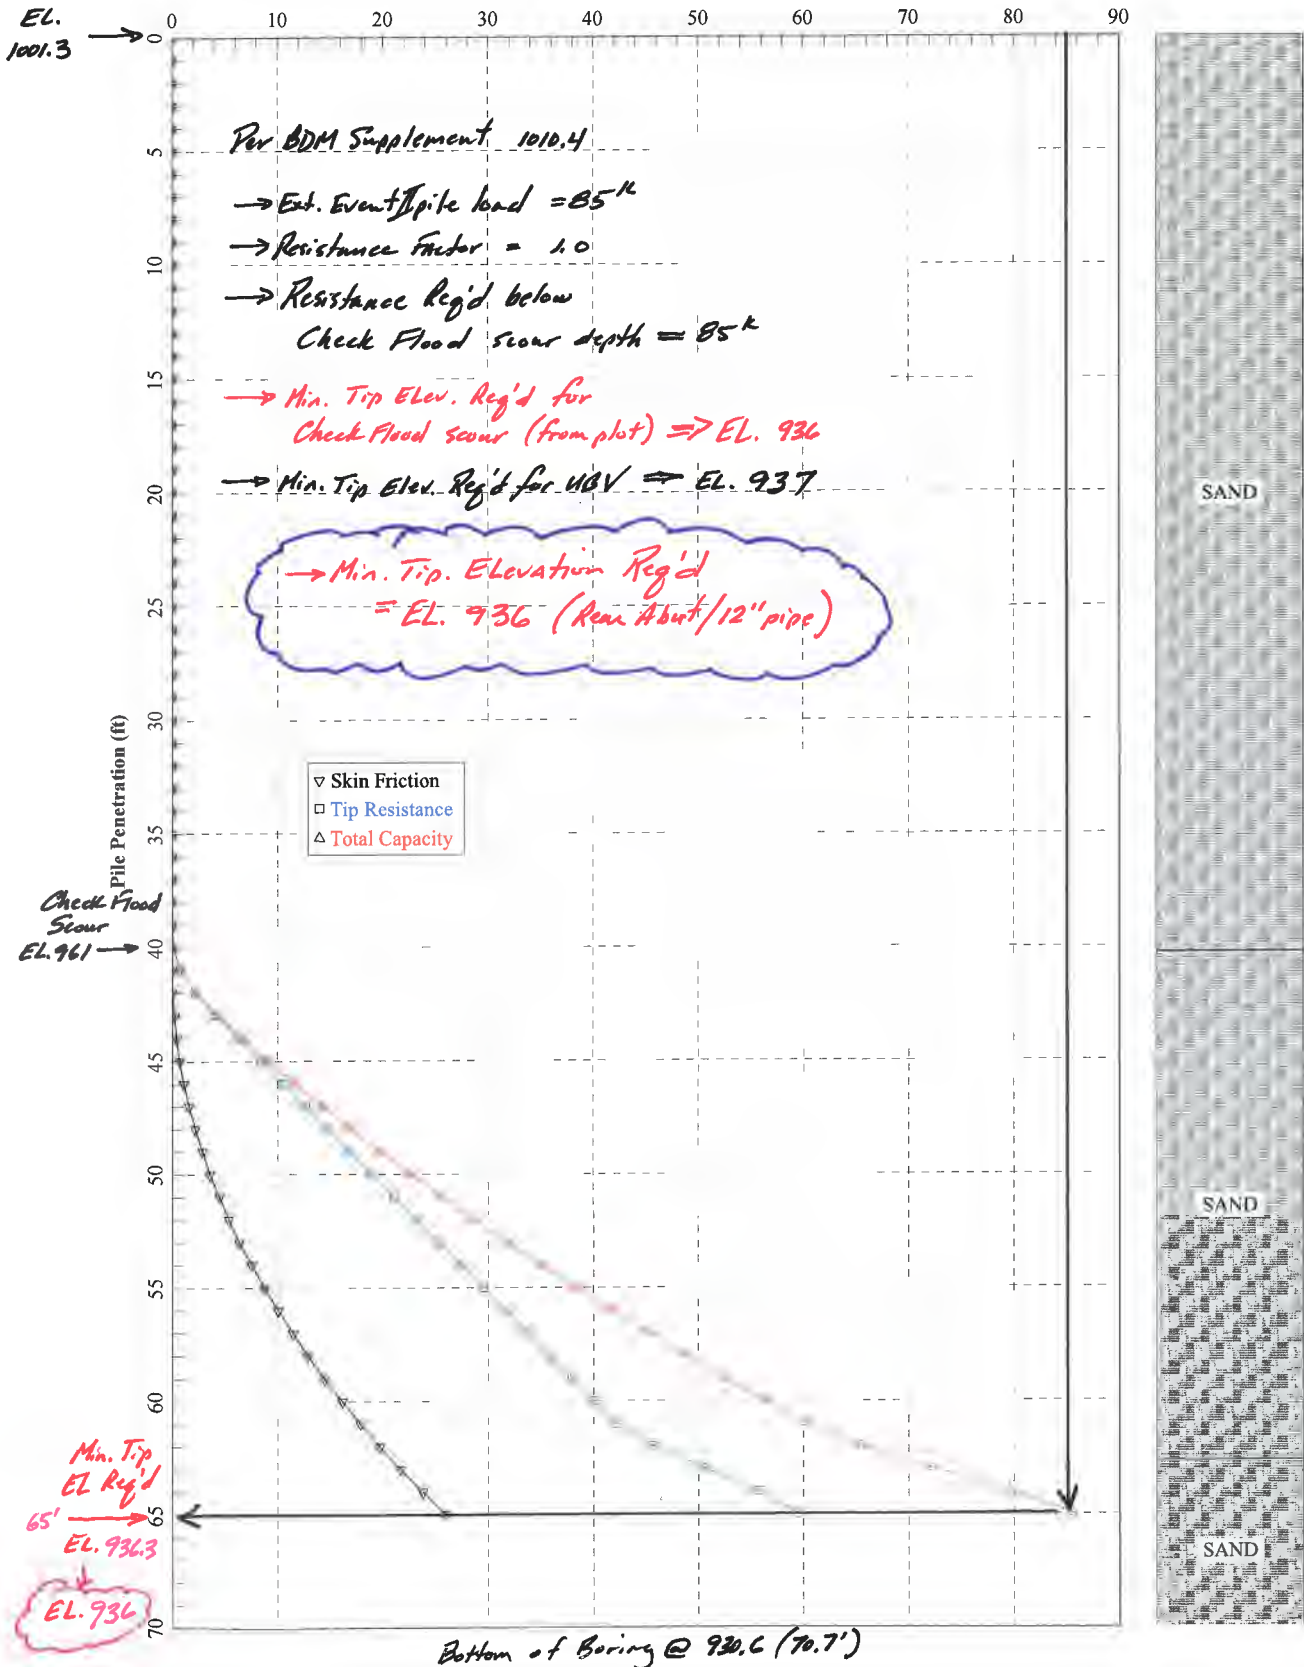 EL.
1001.3
0 10 20 30 40 50 60 70 80 90
0
5
10
15
20
25
30
35
40
45
50
55
60
65
70
Pile Penetration (ft)
Per BDM Supplement 1010.4
→ Ext. Event II pile load = 85k
→ Resistance Factor = 1.0
→ Resistance Req'd below
Check Flood scour depth = 85k
→ Min. Tip Elev. Req'd for
Check Flood scour (from plot) => EL. 936
→ Min. Tip Elev. Req'd for UBV => EL. 937
→ Min. Tip. Elevation Req'd
= EL. 936 (Rear Abut/12" pipe)
▽ Skin Friction
□ Tip Resistance
△ Total Capacity
Check Flood
Scour
EL. 961 →
Min. Tip
EL Req'd
65' →
EL. 936.3
EL. 936
SAND
SAND
SAND
Bottom of Boring @ 930.6 (70.7')